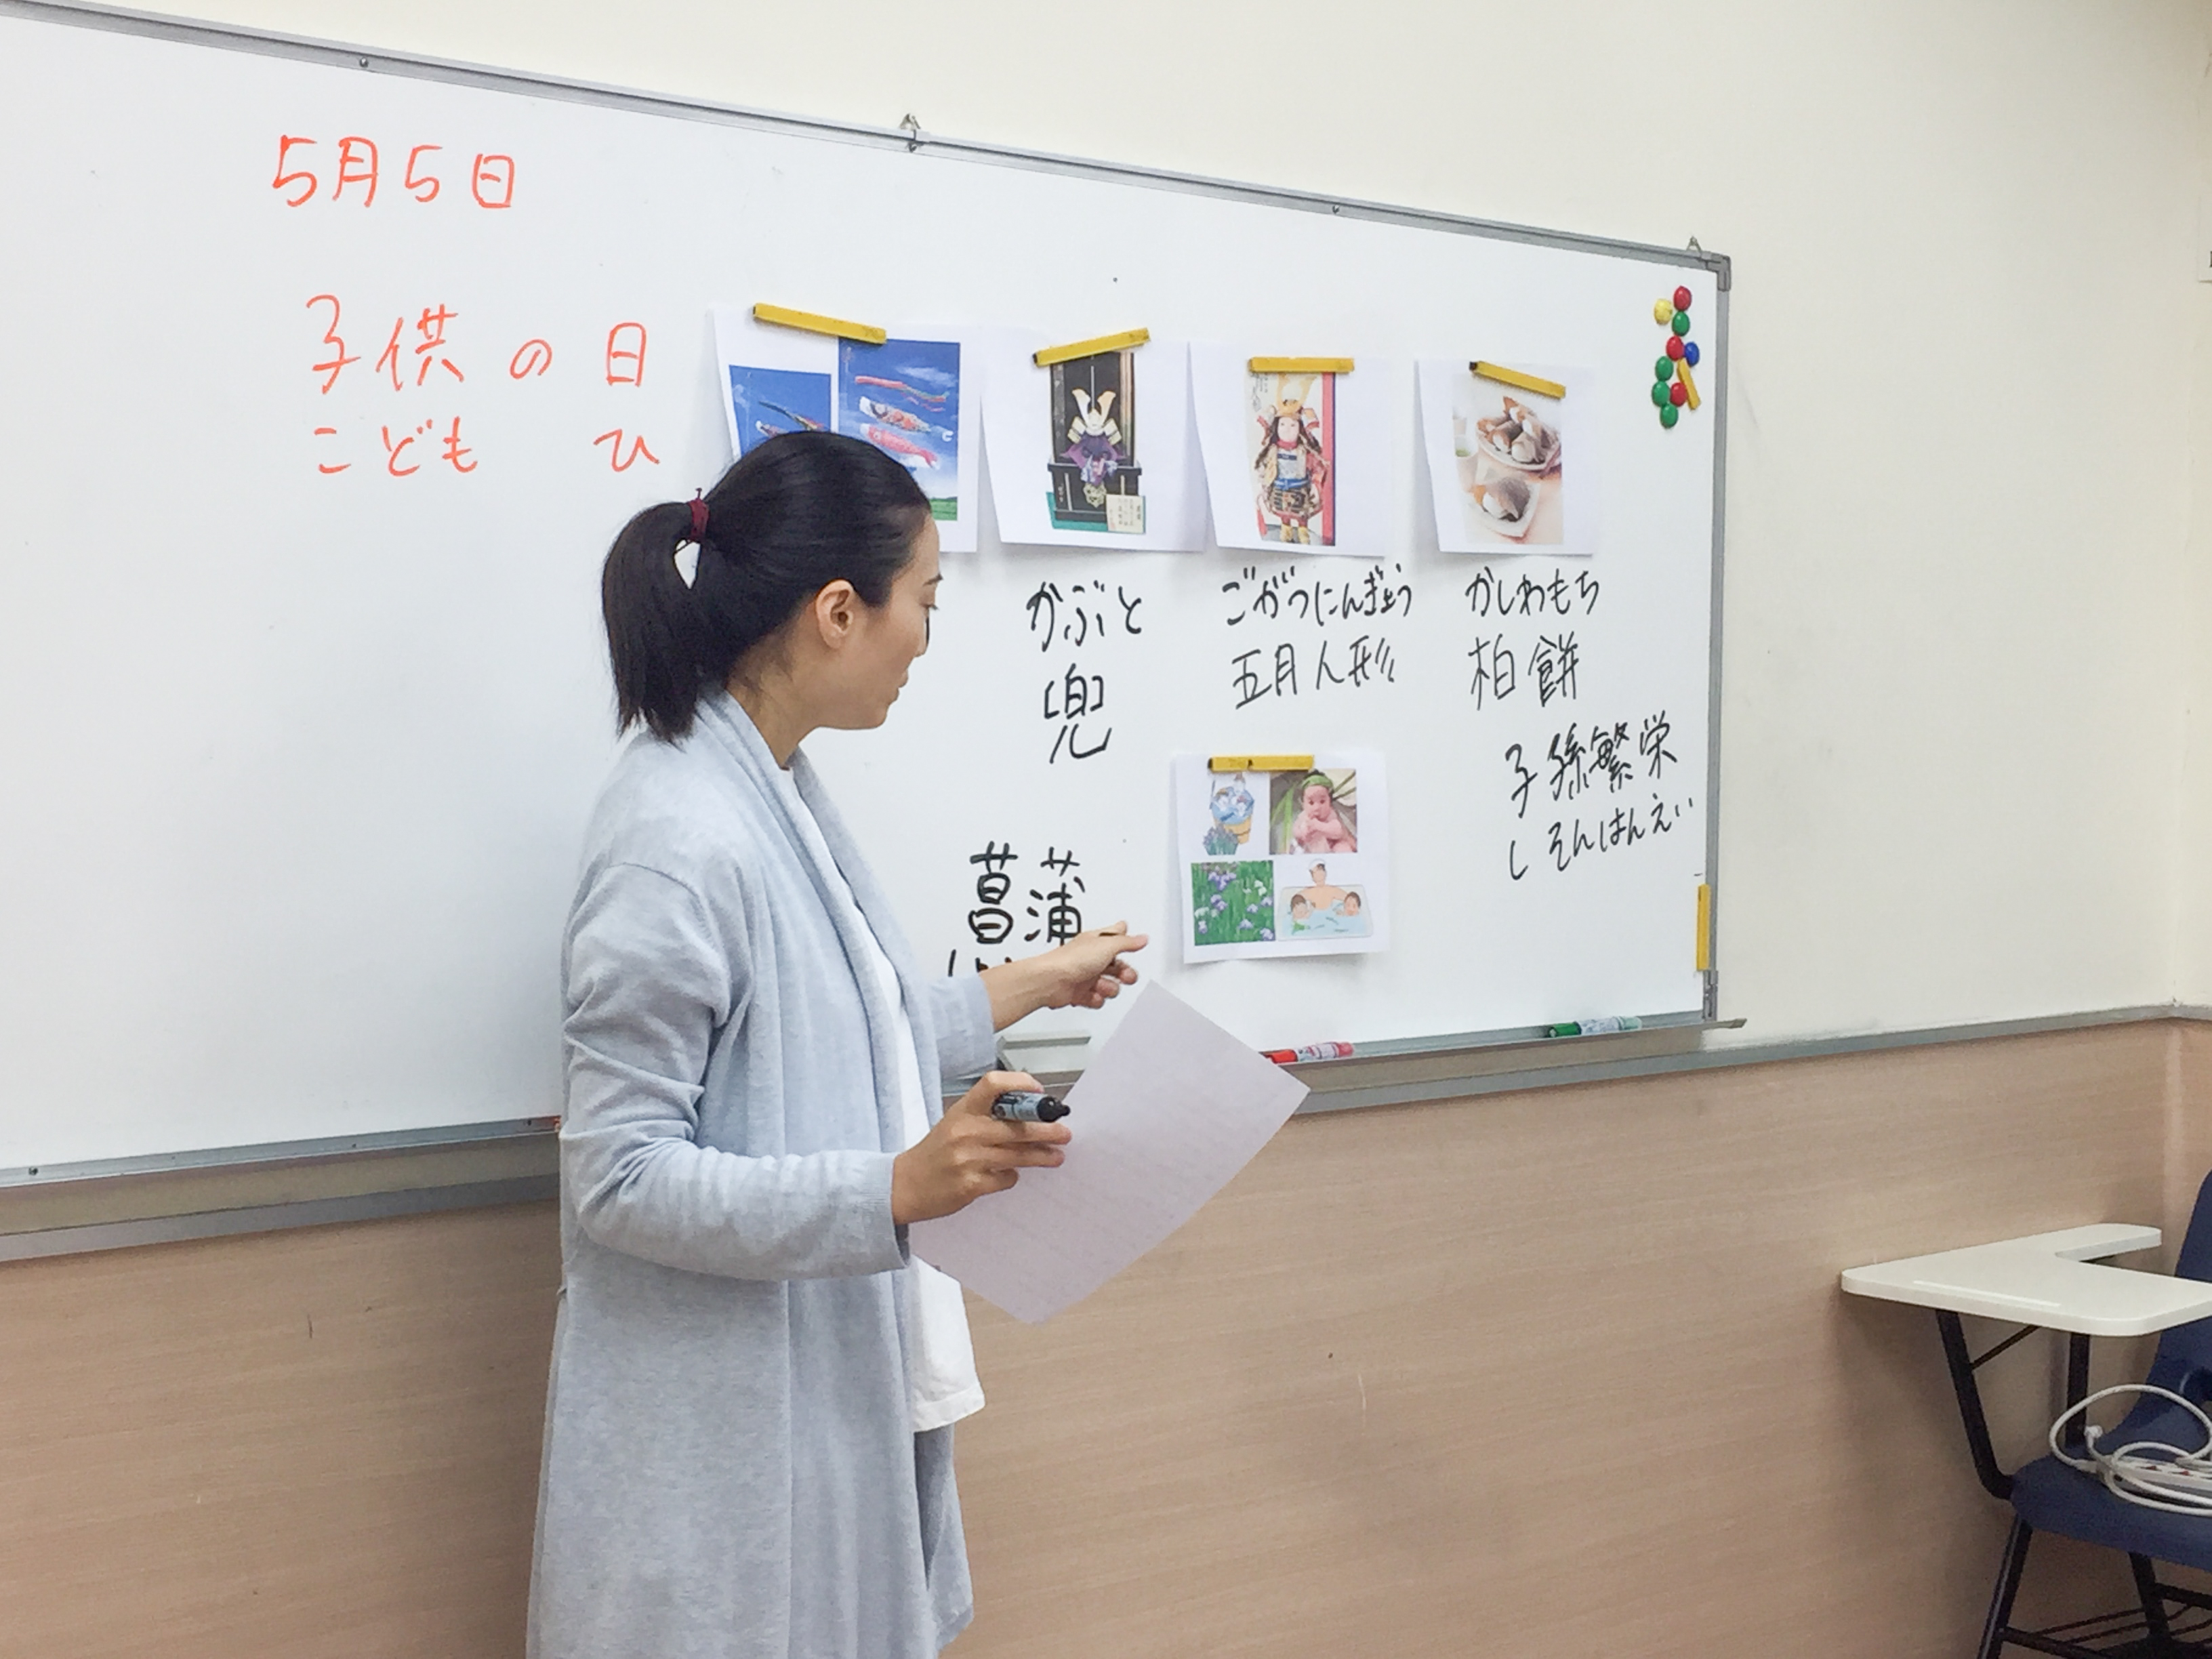 5月5日
子供の日
こども ひ
かぶと
兜
ごがつにんぎょう
五月人形
かしわもち
柏餅
子孫繁栄
しそんはんえい
菖蒲